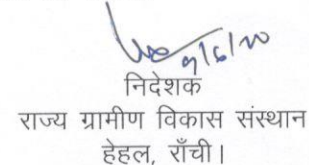 9/6/20
निदेशक
राज्य ग्रामीण विकास संस्थान
हेहल, राँची।